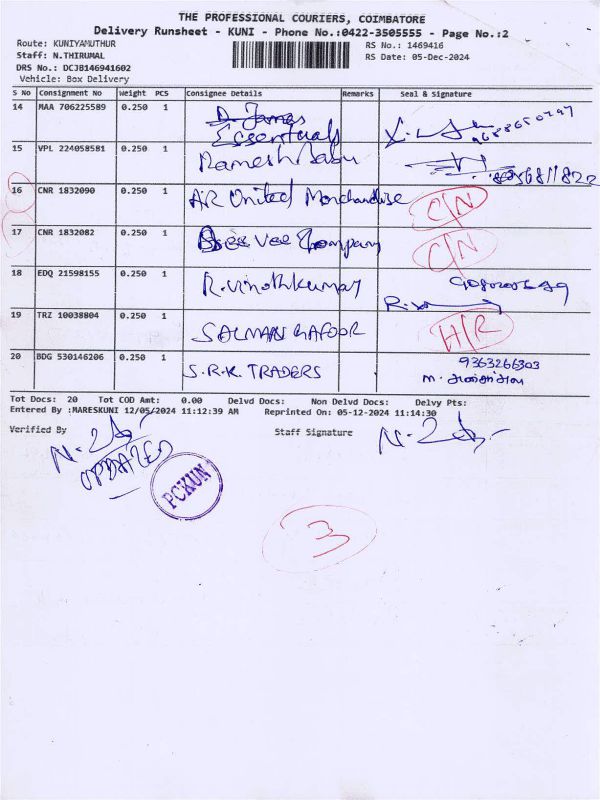 THE PROFESSIONAL COURIERS, COIMBATORE
Delivery Runsheet - KUNI - Phone No.:0422-3505555 - Page No.:2
Route: KUNIYAMUTHUR RS No.: 1469416
Staff: N.THIRUMAL RS Date: 05-Dec-2024
DRS No.: DCJB146941602
Vehicle: Box Delivery
S No Consignment No Weight PCS Consignee Details Remarks Seal & Signature
14 MAA 706225589 0.250 1 D. James
Essentials
15 VPL 224058581 0.250 1 Ramesh Babu
16 CNR 1832090 0.250 1 AiR United Merchandise C/N
17 CNR 1832082 0.250 1 Vee Company C/N
18 EDQ 21598155 0.250 1 R.Vinothkumar
19 TRZ 10038804 0.250 1 SALMAN GAFOOR H/R
20 BDG 530146206 0.250 1 S.R.K. TRADERS 9363266303
Tot Docs: 20 Tot COD Amt: 0.00 Delvd Docs: Non Delvd Docs: Delvy Pts:
Entered By :MARESKUNI 12/05/2024 11:12:39 AM Reprinted On: 05-12-2024 11:14:30
Verified By Staff Signature
UPDATED
PCKUN
3